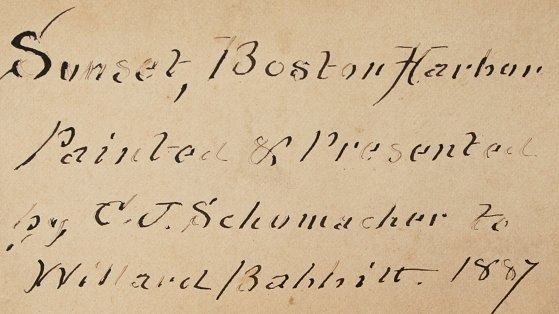 Sunset, Boston Harbor
Painted & Presented
by C. J. Schumacher to
Willard Babbitt. 1887